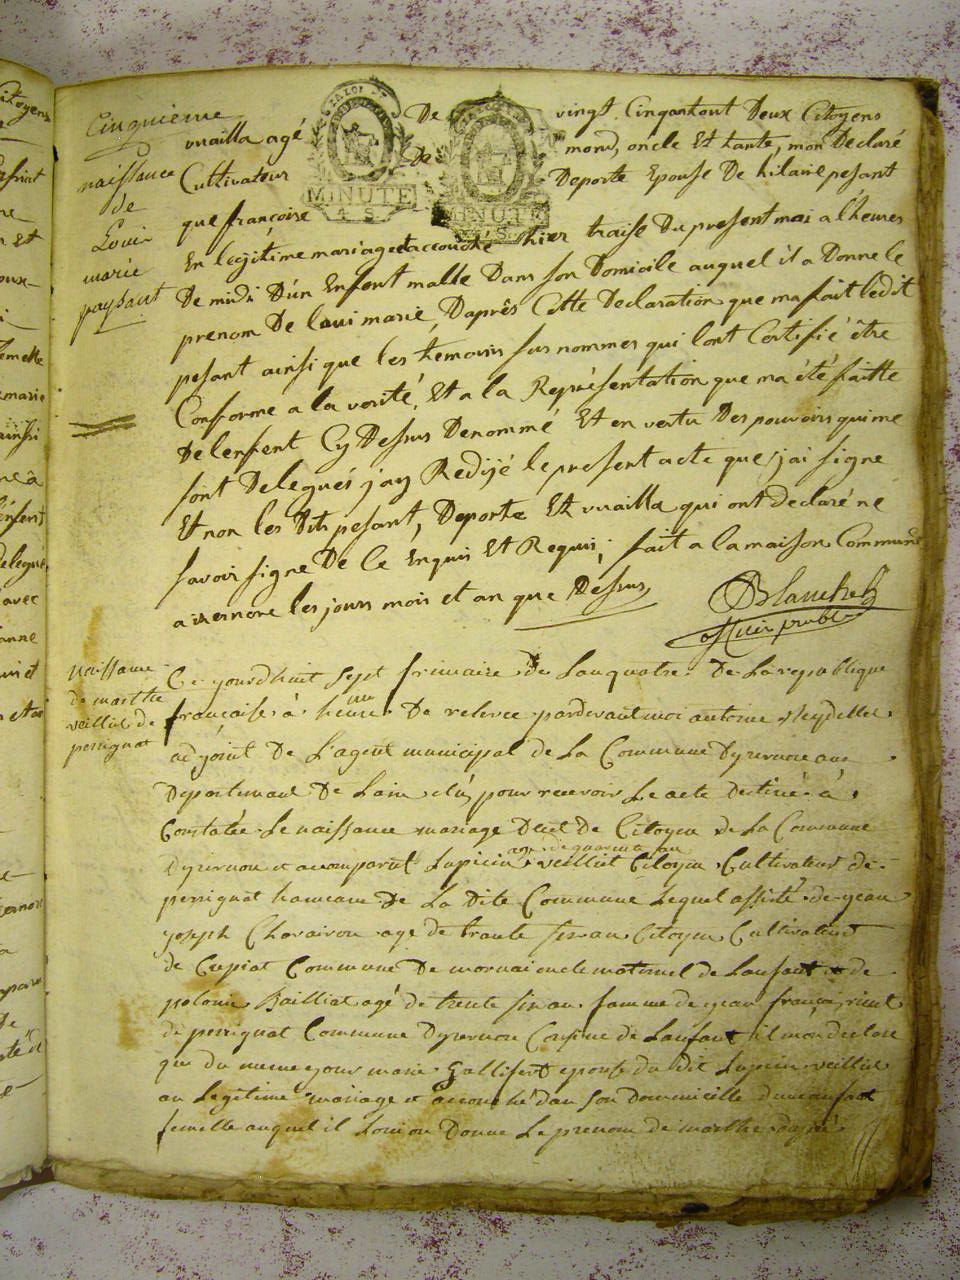 Cinquieme
naissance
de
Loui
marie
paysant
LA LOI
MINUTE
4 S.
MINUTE
De vingt Cinq ant out Deux Citoyens
vuailla agé De mond, oncle Et tante, mon Declaré
Cultivateur Deporte Epouse De hilaire pesant
que françoise
En legitime mariage et accouché hier traise Du present mai a l'heures
De midi D'un Enfent malle Dans son Domicile auquel il a Donne le
prenom De loui marie, D'aprês Cette Declaration que ma fait ledit
pesant ainsi que les temoins sus nommes qui lont Certifié être
Conforme a la verité, Et a la Représentation que ma été faitte
De lenfent Cy Dessus Denommé Et en vertu Des pouvoirs qui me
sont Delegués jay Redijé le present acte que j'ai signe
Et non les Dits pesant, Deporte Et vuailla qui ont declaré ne
savoir signe De le Enquis Et Requis, fait a la maison Commune
a izernore les jours mois et an que Dessus,
Blanchet
offiier public
naissance
de marthe
veillut de
perrignat
Ce jourdhuit sept frimaire de lan quatre De La republique
française à heure De relevee pardevant moi antoine
adjoint De L'agent municipal de La Commune Dyzernore
Departement De Lain elú pour recevoir Le acte destiné à
Constatée Le naissance mariage Decet De Citoyen de La Commune
Dyzernore et a comparut Lupicin veillut Citoyen Cultivateur de
age de quarante an
perrignat hameau De La Dite Commune Lequel assisté de jean
joseph Chavairon age de trante six an Citoyen Cultivateur
de Ceepiat Commune De mornai oncle maternel de Lanfant et de
polonie Bailliat agé de trente six an famme de jean françoi
de perrignat Commune Dyzernore Cousine de Lanfant il mon declare
que du meme jour marie Gallifert epouse du dit Lupicin veillut
an Legitime mariage et accouché dan son dommicille d'une anfant
femelle auquel il Donne Le prenom de marthe daprè